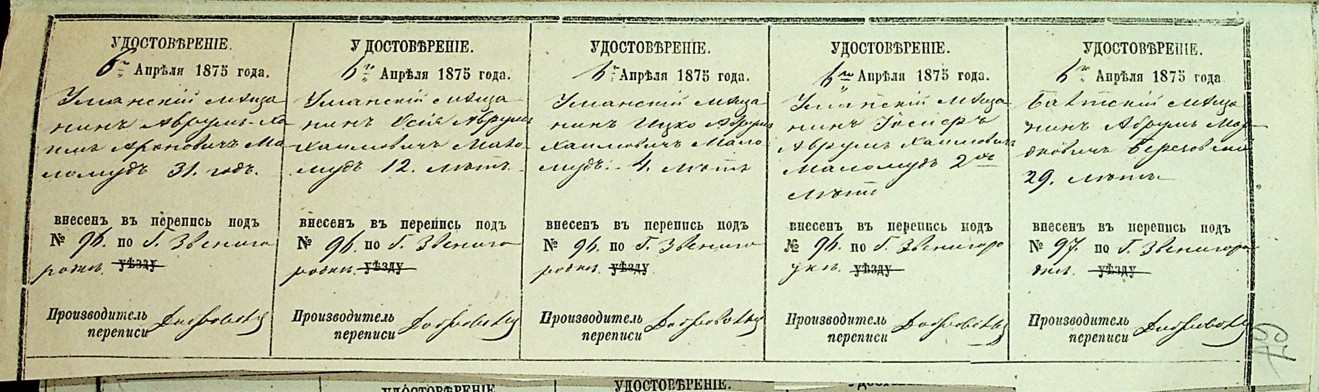 УДОСТОВѢРЕНІЕ.
6го Апрѣля 1875 года.
Уманскій мѣща-
нинъ Аврумъ-Ха-
имъ Ароновичъ Ма-
ломудъ 31. годъ.
внесенъ въ перепись подъ
№ 96. по Г. Звениго-
родкѣ. уѣзду
Производитель
переписи
УДОСТОВѢРЕНІЕ.
6го Апрѣля 1875 года.
Уманскій мѣща-
нинъ Осія Аврумъ
Хаимовичъ Мало-
мудъ 12. лѣтъ.
внесенъ въ перепись подъ
№ 96. по Г. Звениго-
родкѣ. уѣзду
Производитель
переписи
УДОСТОВѢРЕНІЕ.
6го Апрѣля 1875 года.
Уманскій мѣща-
нинъ Ицко Аврумъ
Хаимовичъ Мало-
мудъ. 4. лѣтъ
внесенъ въ перепись подъ
№ 96. по Г. Звениго-
родкѣ. уѣзду
Производитель
переписи
УДОСТОВѢРЕНІЕ.
6го Апрѣля 1875 года.
Уманскій мѣща-
нинъ
Аврумъ Хаимовичъ
Маломудъ 2
лѣтъ
внесенъ въ перепись подъ
№ 96. по Г. Звенигоро-
дкѣ. уѣзду
Производитель
переписи
УДОСТОВѢРЕНІЕ.
6го Апрѣля 1875 года
Балтскій мѣща-
нинъ Аврумъ Мор-
дковичъ
29. лѣтъ
внесенъ въ перепись подъ
№ 97. по Г. Звенигоро-
дкѣ. уѣзду
Производитель
переписи
УДОСТОВѢРЕНІЕ
УДОСТОВѢРЕНІЕ.